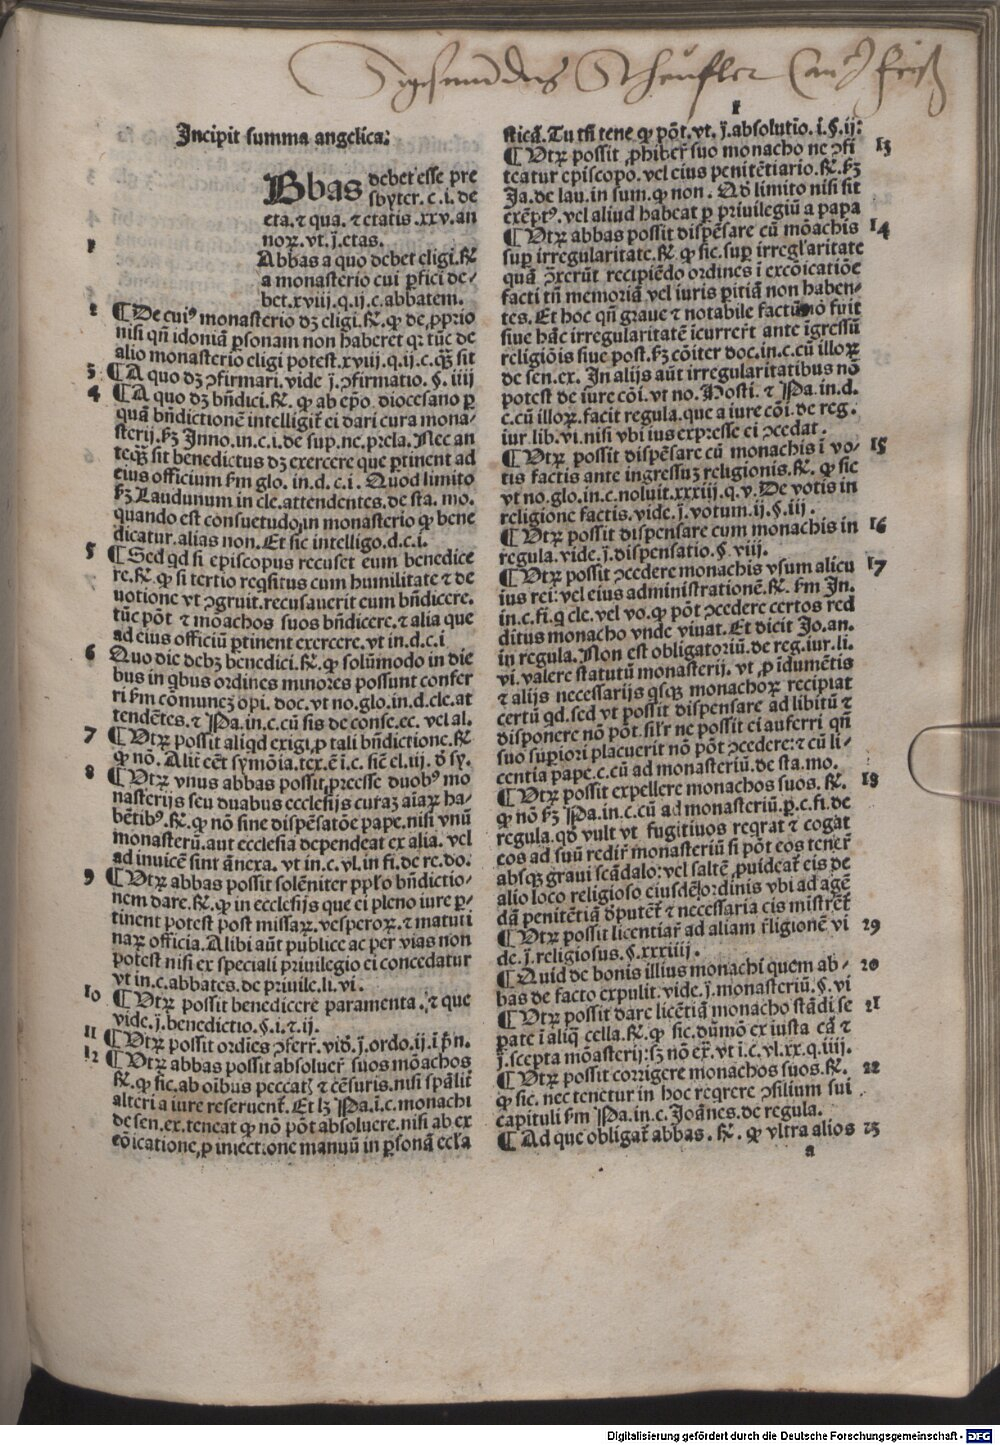 Sigismundus Scheufler Can: Frisi:
1
Incipit summa angelica:
Bbas debet esse pre
sbyter. c. i. de
eta. ⁊ qua. ⁊ etatis .xxv. an
noꝝ. vt. j̄. etas.
1
Abbas a quo debet eligi. R̄.
a monasterio cui p̄fici de⸗
bet. xviij. q. ij. c. abbatem.
2 ¶ De cuiꝰ monasterio dꝫ eligi. R̄. ꝙ de, ꝓprio
nisi qn̄ idoniā ꝑsonam non haberēt qꝛ tūc de
alio monasterio eligi potest. xviij. q. ij. c. qꝙ̄ sit
3 ¶ A quo dꝫ ꝯfirmari. vide j̄. ꝯfirmatio. §. iiij
4 ¶ A quo dꝫ bn̄dici. R̄. ꝙ ab ep̄o diocesano ꝑ
quā bn̄dictionē intelligit̄ ei dari cura mona⸗
sterij. ẜꝫ Inno. in. c. i. de sup. ne. p̄ela. Nec an
teqꝙ̄ sit benedictus dꝫ exercere que ꝑtinent ad
eius officium ẜm glo. in. d. c. i. Quod limito
ẜꝫ Laudunum in cle. attendentes. de sta. mo.
quando est consuetudo, in monasterio ꝙ bene
dicatur. alias non. Et sic intelligo. d. c. i.
5 ¶ Sed qd si episcopus recuset eum benedice
re. R̄. ꝙ si tertio reqsitus cum humilitate ⁊ de
uotione vt ꝯgruit. recusauerit eum bn̄dicere.
tūc pōt ⁊ mōachos suos bn̄dicere. ⁊ alia que
ad eius officiū ꝑtinent exercere. vt in. d. c. i
6 Quo die debꝫ benedici. R̄. ꝙ solūmodo in die
bus in qbus ordines minores possunt confer
ri ẜm cōmunez opi. doc. vt no. glo. in. d. cle. at
tendētes. ⁊ Pa. in. c. cū sis de conse. ec. vel al.
7 ¶ Vtꝝ possit aliqd exigi, ꝓ tali bn̄dictione. R̄
ꝙ nō. Alit̄ eēt symōia. tex. ē i. c. sic̄ el. iij. ꝺ sy.
8 ¶ Vtꝝ vnus abbas possit, ꝓesse duobꝰ mo
nasterijs seu duabus ecclesijs curaꝫ aīaꝝ ha⸗
bētibꝰ. R̄. ꝙ nō sine dispēsatōe pape. nisi vnū
monasterū. aut ecclesia dependeat ex alia. vel
ad inuicē sint ānexa. vt in. c. vl. in fi. de re. do.
9 ¶ Vtꝝ abbas possit solēniter ppl̄o bn̄dictio⸗
nem dare. R̄. ꝙ in ecclesijs que ei pleno iure ꝑ⸗
tinent potest post missaꝝ. vesperoꝝ. ⁊ matuti
naꝝ officia. Alibi aūt publice ac per vias non
potest nisi ex speciali priuilegio ei concedatur
vt in. c. abbates. de priuile. li. vi.
10 ¶ Vtꝝ possit benedicere paramenta. ⁊ que
vide. j̄. benedictio. §. i. ⁊. ij.
11 ¶ Vtꝝ possit ordīes ꝯferr̄. vid̄. j̄. ordo. ij. ī p̄n.
12 ¶ Vtꝝ abbas possit absoluer̄ suos mōachos
R̄. ꝙ sic. ab oībus peccatꝭ ⁊ cēsuris. nisi sp̄alit̄
alteri a iure reseruent̄. Et lꝫ Pa. ī. c. monachi
de sen. ex. teneat ꝙ nō pōt absoluere. nisi ab ex
cōicatione, ꝓ iniectione manuū in ꝑsonā eccl̄a
sticā. Tu tn̄ tene ꝙ pōt. vt. j̄. absolutio. i. §. ij:
¶ Vtꝝ possit, ꝓhiber̄ suo monacho ne ꝯfi 13
teatur episcopo. vel eius penitētiario. R̄. ẜꝫ
Ja. de lau. in sum. ꝙ non. Qd̄ limito nisi sit
exēptꝰ. vel aliud habeat ꝑ priuilegiū a papa
¶ Vtꝝ abbas possit dispēsare cū mōachis 14
suꝑ irregularitate. R̄. ꝙ sic. suꝑ irregl̄aritate
quā ꝯtxerūt recipiēdo ordines ī excōicatiōe
facti tn̄ memoriā vel iuris ꝑitiā non haben⸗
tes. Et hoc qn̄ graue ⁊ notabile factū nō fuit
siue hāc irregularitatē īcurrer̄t ante īgressū
religiōis siue post. ẜꝫ cōiter doc. in. c. cū illoꝝ
de sen. ex. In alijs aūt irregularitatibus nō
potest de iure cōi. vt no. Hosti. ⁊ Pa. in. d.
c. cū illoꝝ. facit regula. que a iure cōi. de reg.
iur. lib. vi. nisi vbi ius expresse ei ꝯcedat.
¶ Vtꝝ possit dispēsare cū monachis ī vo⸗ 15
tis factis ante ingressuꝫ religionis. R̄. ꝙ sic
vt no. glo. in. c. noluit. xxxiij. q. v. De votis in
religione factis. vide. j̄. votum. ij. §. iij.
¶ Vtꝝ possit dispensare cum monachis in 16
regula. vide. j̄. dispensatio. §. viij.
¶ Vtꝝ possit ꝯcedere monachis vsum alicu 17
ius rei: vel eius administrationē. R̄. ẜm In.
in. c. fi. q cle. vel vo. ꝙ pōt ꝯcedere certos red
ditus monacho vnde viuat. Et dicit Jo. an.
in regula. Non est obligatoriū. de reg. iur. li.
vi. valere statutū monasterij. vt, ꝓ īdumētis
⁊ alijs necessarijs qsqꝫ monachoꝝ recipiat
certū qd. sed vt possit dispensare ad libitū ⁊
disponere nō pōt. sil̄r ne possit ei auferri qn̄
suo superiori placuerit nō pōt ꝯcedere: ⁊ cū li⸗
centia pape. c. cū ad monasteriū. de sta. mo.
¶ Vtꝝ possit expellere monachos suos. R̄. 18
ꝙ nō ẜꝫ Pa. in. c. cū ad monasteriū. p̄. c. fi. de
regula. qd̄ vult vt fugitiuos reqrat ⁊ cogat
eos ad suū redir̄ monasteriū si pōt eos tener̄
absqꝫ graui scādalo: vel saltē, ꝓuideat̄ eis de
alio loco religioso eiusdē ordinis vbi ad agē
dā penitētiā ꝺputēt̄ ⁊ necessaria eis mīstrēt̄
¶ Vtꝝ possit licentiar̄ ad aliam r̄ligionē vi 29
de. j̄. religiosus. §. xxxiiij.
¶ Quid de bonis illius monachi quem ab⸗ 20
bas de facto expulit. vide. j̄. monasteriū. §. vi
¶ Vtꝝ possit dare licētiā monacho stādi se 21
ꝑate ī aliq̄ cella. R̄. ꝙ sic. dūmō ex iusta cā ⁊
j̄. scepta mōasterij: sꝫ nō ex̄. vt ī. c. vl. xx. q. iiij.
¶ Vtꝝ possit corrigere monachos suos. R̄. 22
ꝙ sic. nec tenetur in hoc reqrere ꝯsilium sui
capituli ẜm Pa. in. c. Joānes. de regula.
¶ Ad que obligat̄ abbas. R̄. ꝙ vltra alios 23
a
Digitalisierung gefördert durch die Deutsche Forschungsgemeinschaft - DFG